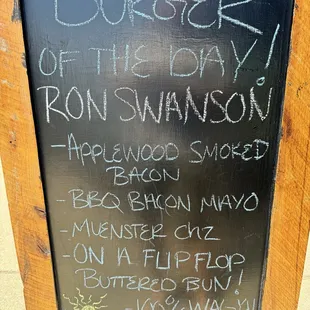 BURGER
OF THE DAY!
RON SWANSON
- APPLEWOOD SMOKED
BACON
- BBQ BACON MAYO
- MUENSTER CHZ
- ON A FLIPFLOP
BUTTERED BUN!
- 100% WA-YU